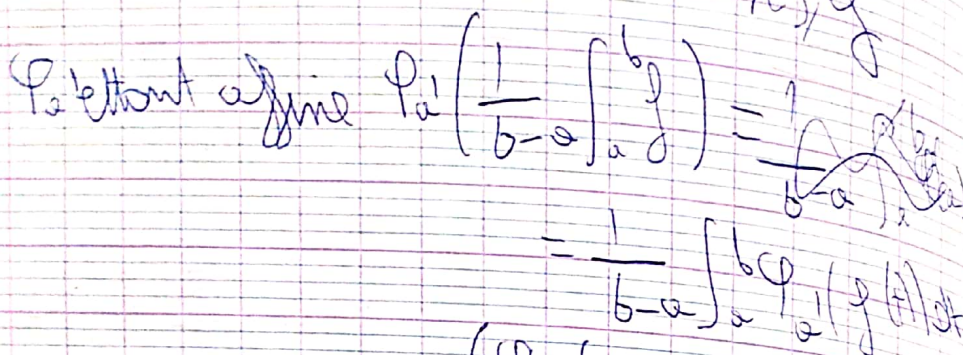 φₐ' ettant affine φₐ'(1/(b-a) ∫ₐᵇ f) = 1/(b-a)
= 1/(b-a) ∫ₐᵇ φₐ'(f(t))dt